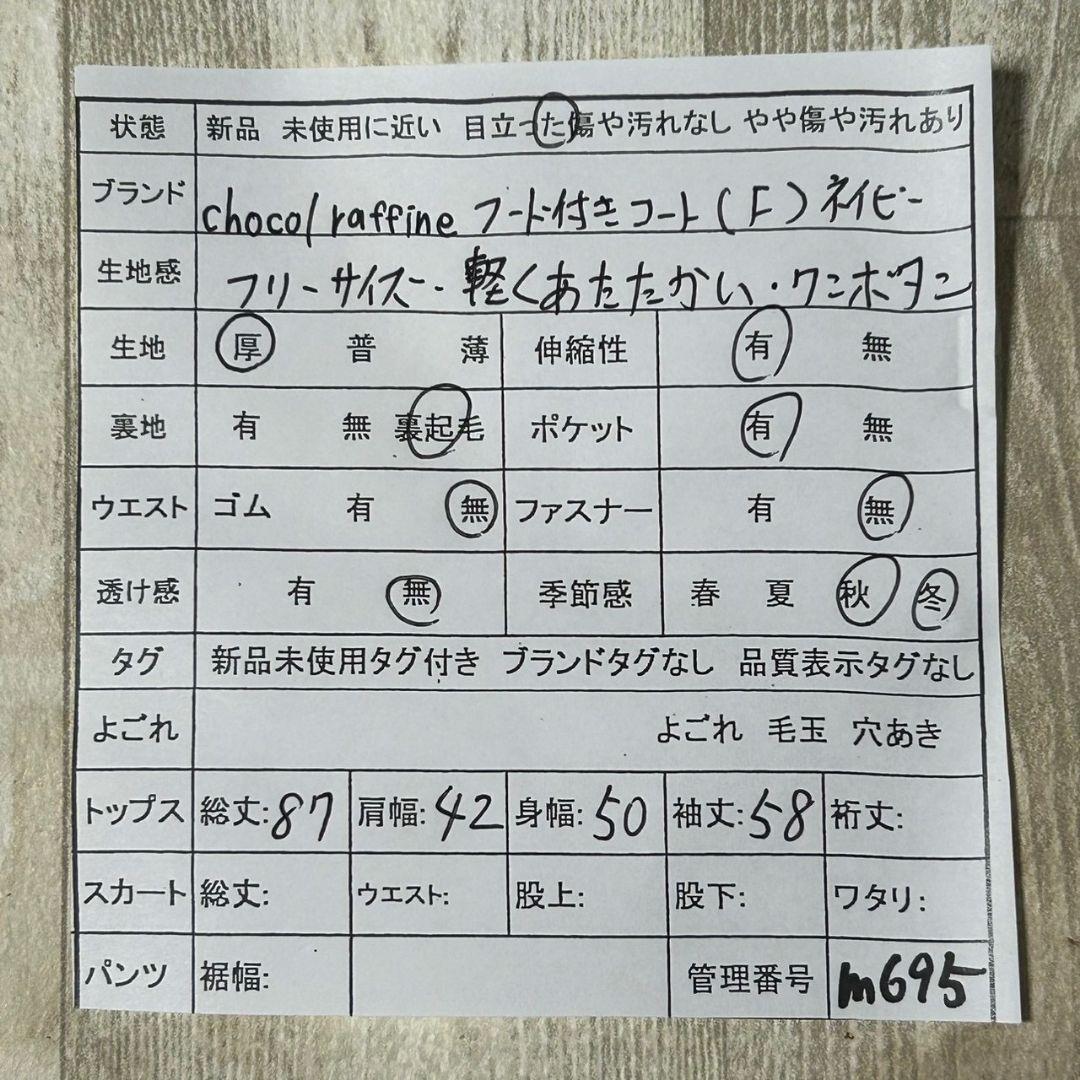 状態 新品 未使用に近い 目立った傷や汚れなし やや傷や汚れあり
ブランド chocol raffine フード付きコート(F)ネイビー
生地感 フリーサイズ・軽くあたたかい・ワンボタン
生地 厚 普 薄 伸縮性 有 無
裏地 有 無 裏起毛 ポケット 有 無
ウエスト ゴム 有 無 ファスナー 有 無
透け感 有 無 季節感 春 夏 秋 冬
タグ 新品未使用タグ付き ブランドタグなし 品質表示タグなし
よごれ よごれ 毛玉 穴あき
トップス 総丈:87 肩幅:42 身幅:50 袖丈:58 裄丈:
スカート 総丈: ウエスト: 股上: 股下: ワタリ:
パンツ 裾幅: 管理番号 m695